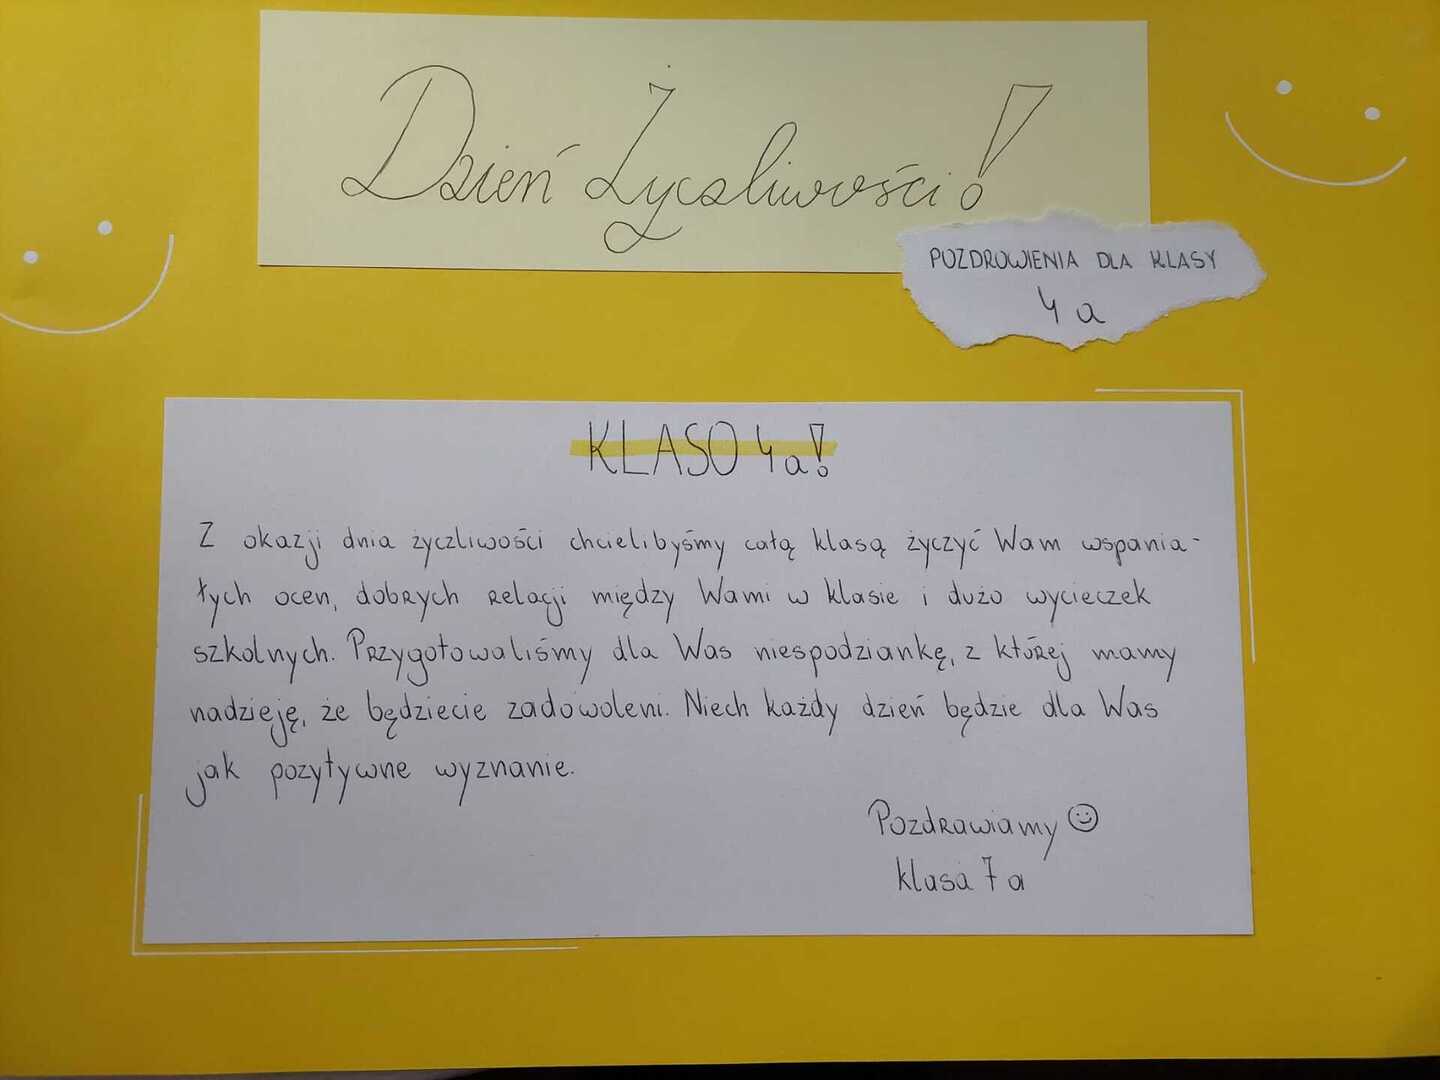 Dzień Życzliwości!
POZDROWIENIA DLA KLASY
4 a
KLASO 4a!
Z okazji dnia życzliwości chcielibyśmy całą klasą życzyć Wam wspania-
łych ocen, dobrych relacji między Wami w klasie i dużo wycieczek
szkolnych. Przygotowaliśmy dla Was niespodziankę, z której mamy
nadzieję, że będziecie zadowoleni. Niech każdy dzień będzie dla Was
jak pozytywne wyznanie.
Pozdrawiamy ☺
klasa 7a